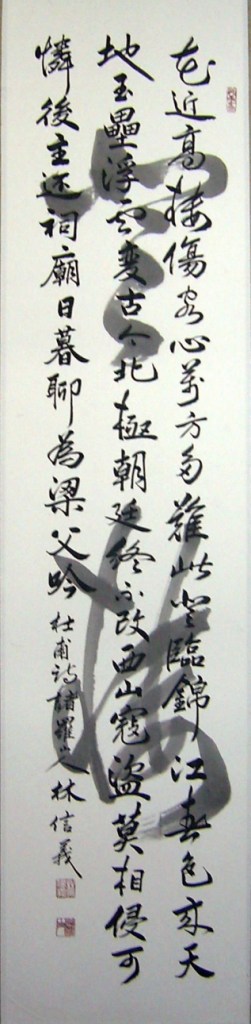 花近高樓傷客心萬方多難此登臨錦江春色來天
地玉壘浮雲變古今北極朝廷終不改西山寇盜莫相侵可
憐後主還祠廟日暮聊為梁父吟
杜甫詩諸羅山人林信義